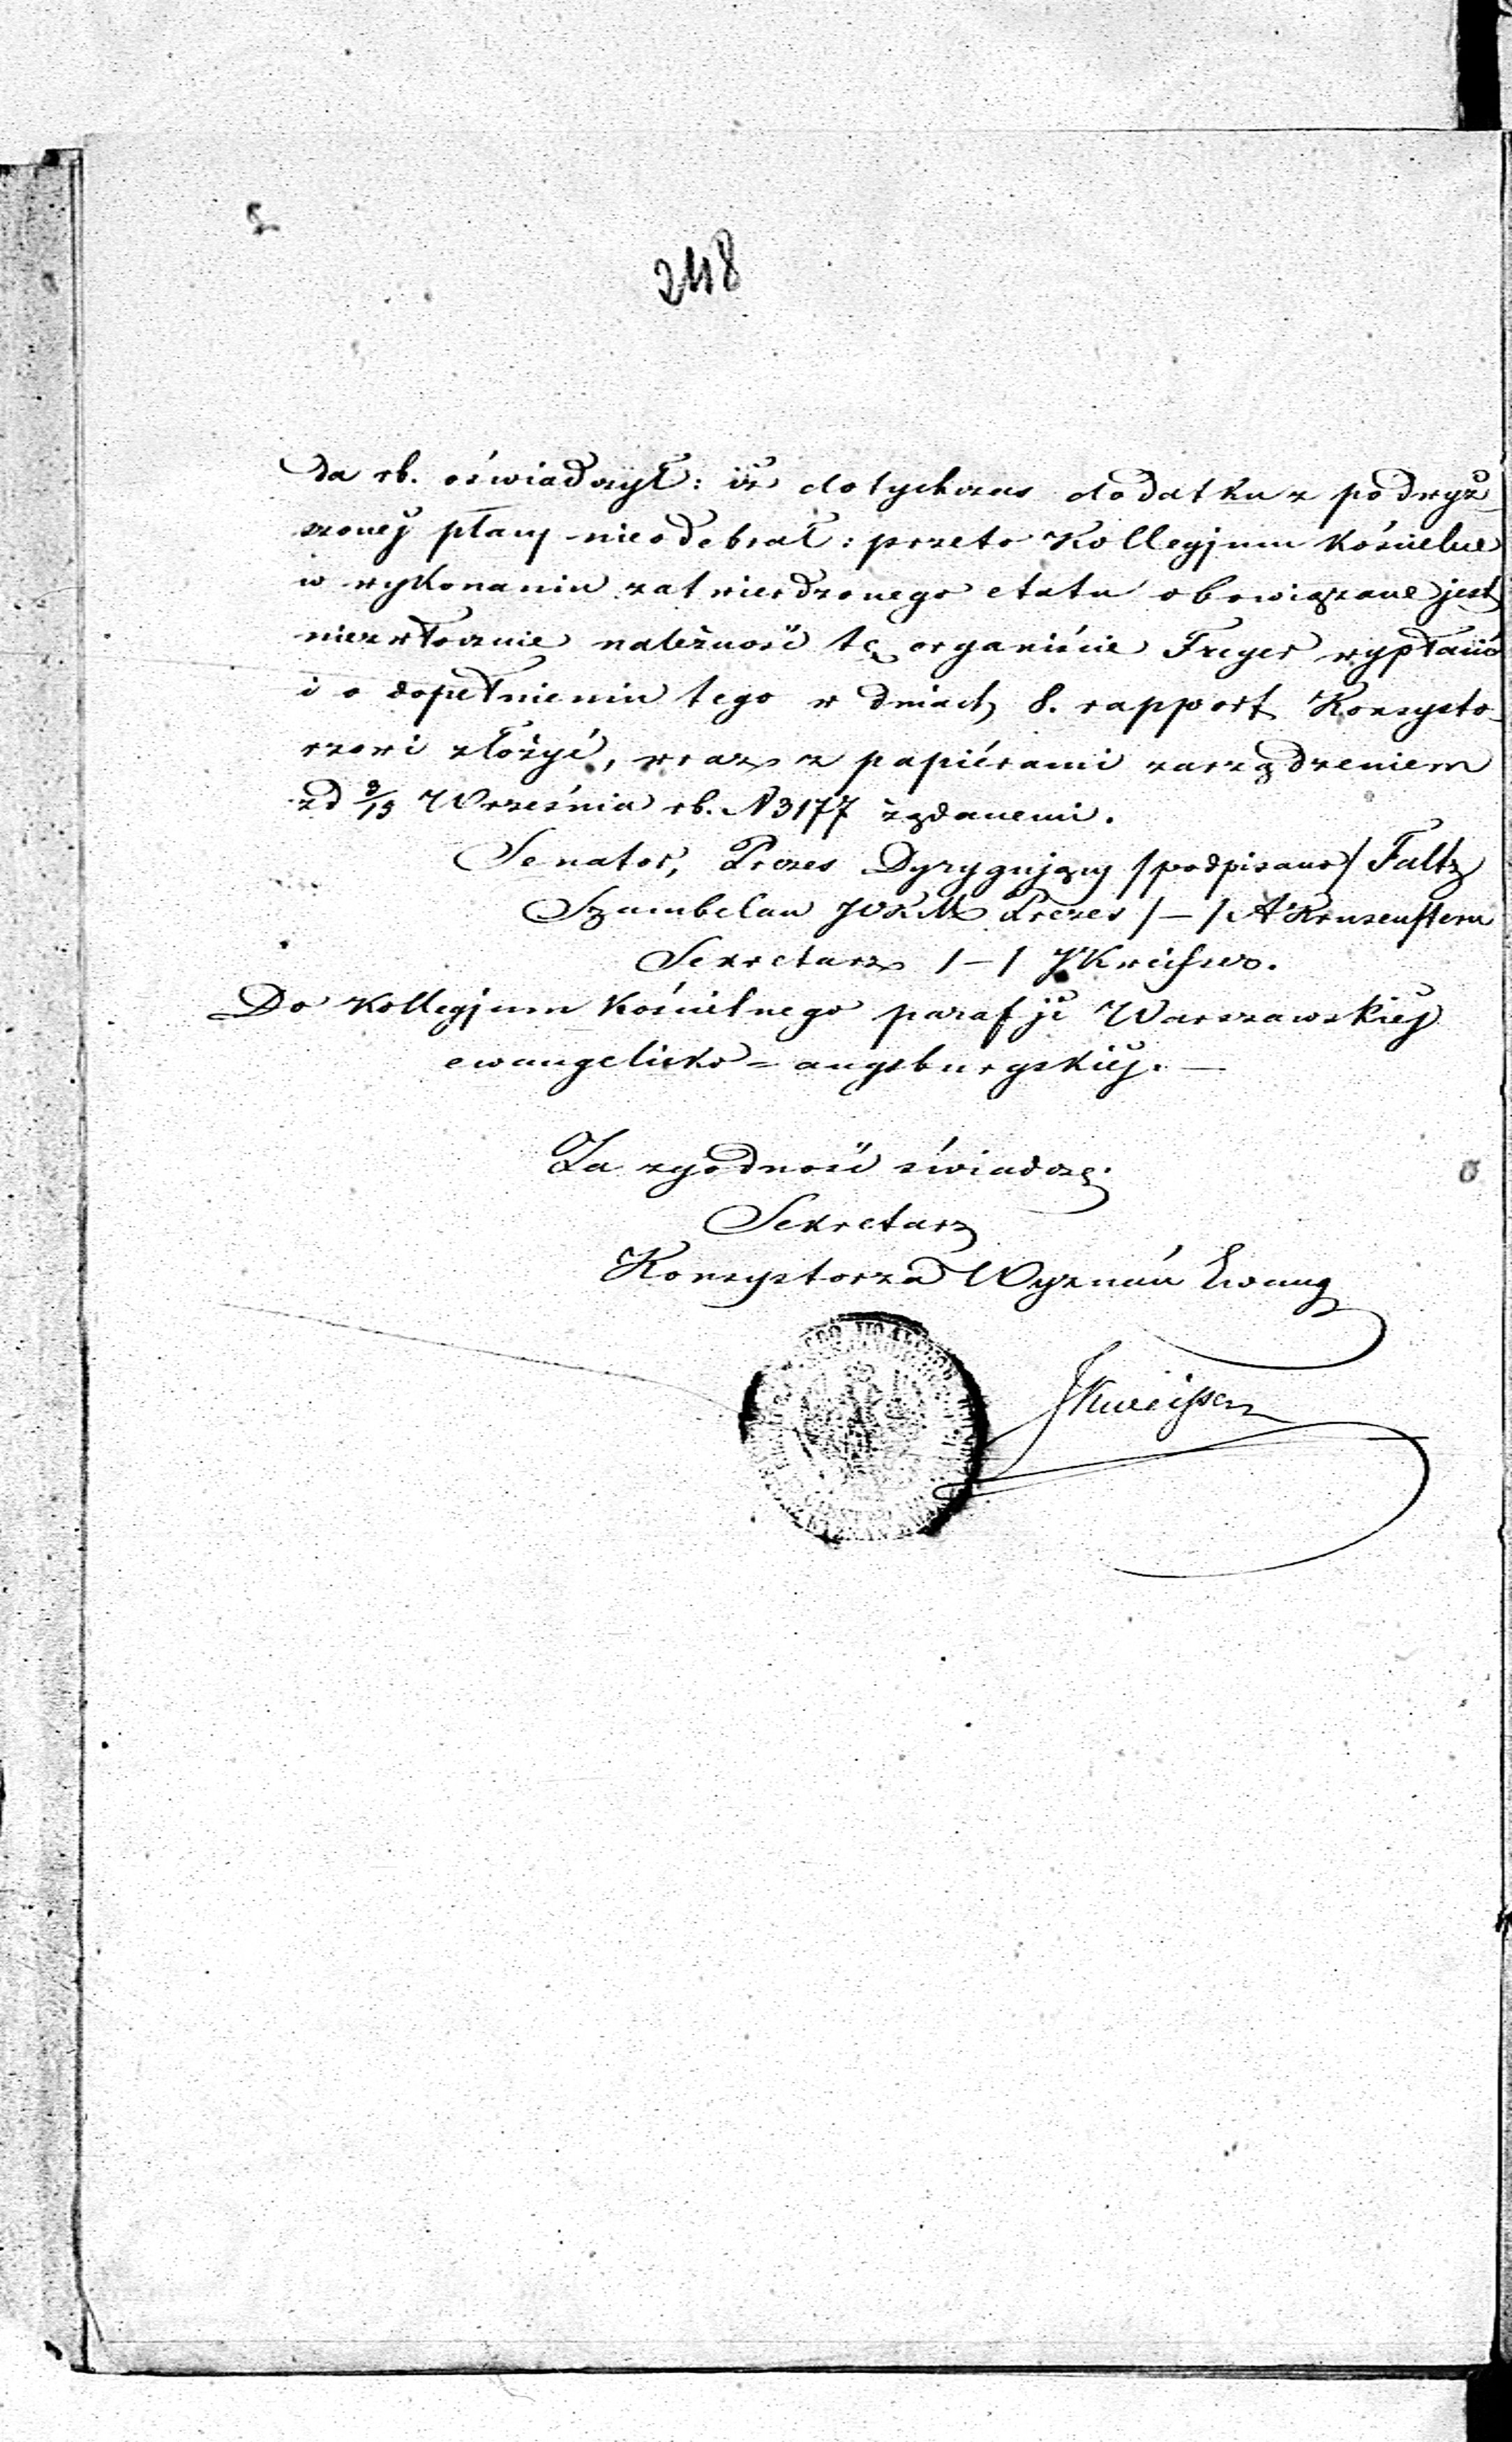 248
da rb. oświadczył: iż dotychczas dodatku z podwyż-
szonej płacy nieodebrał: przeto Kollegjum Kościelne
w wykonaniu zatwierdzonego etatu obowiązane jest
niezwłocznie należność tę organiście Freyer wypłacić
i o dopełnieniu tego w dniach 8. rapport Konsysto-
rzowi złożyć, wraz z papiérami zarządzeniem
zd Września rb. N 3177 żądanemi.
Senator, Prezes Dyrygujący /podpisano/ Faltz
Szambelan JCKM Prezes /—/ A Krusenstern
Sekretarz /—/
Do Kollegjum Kościelnego parafji Warszawskiej
ewangelicko = augsburgskiej. —
Za zgodność świadczę:
Sekretarz
Konsystorza Wyznań Ewang